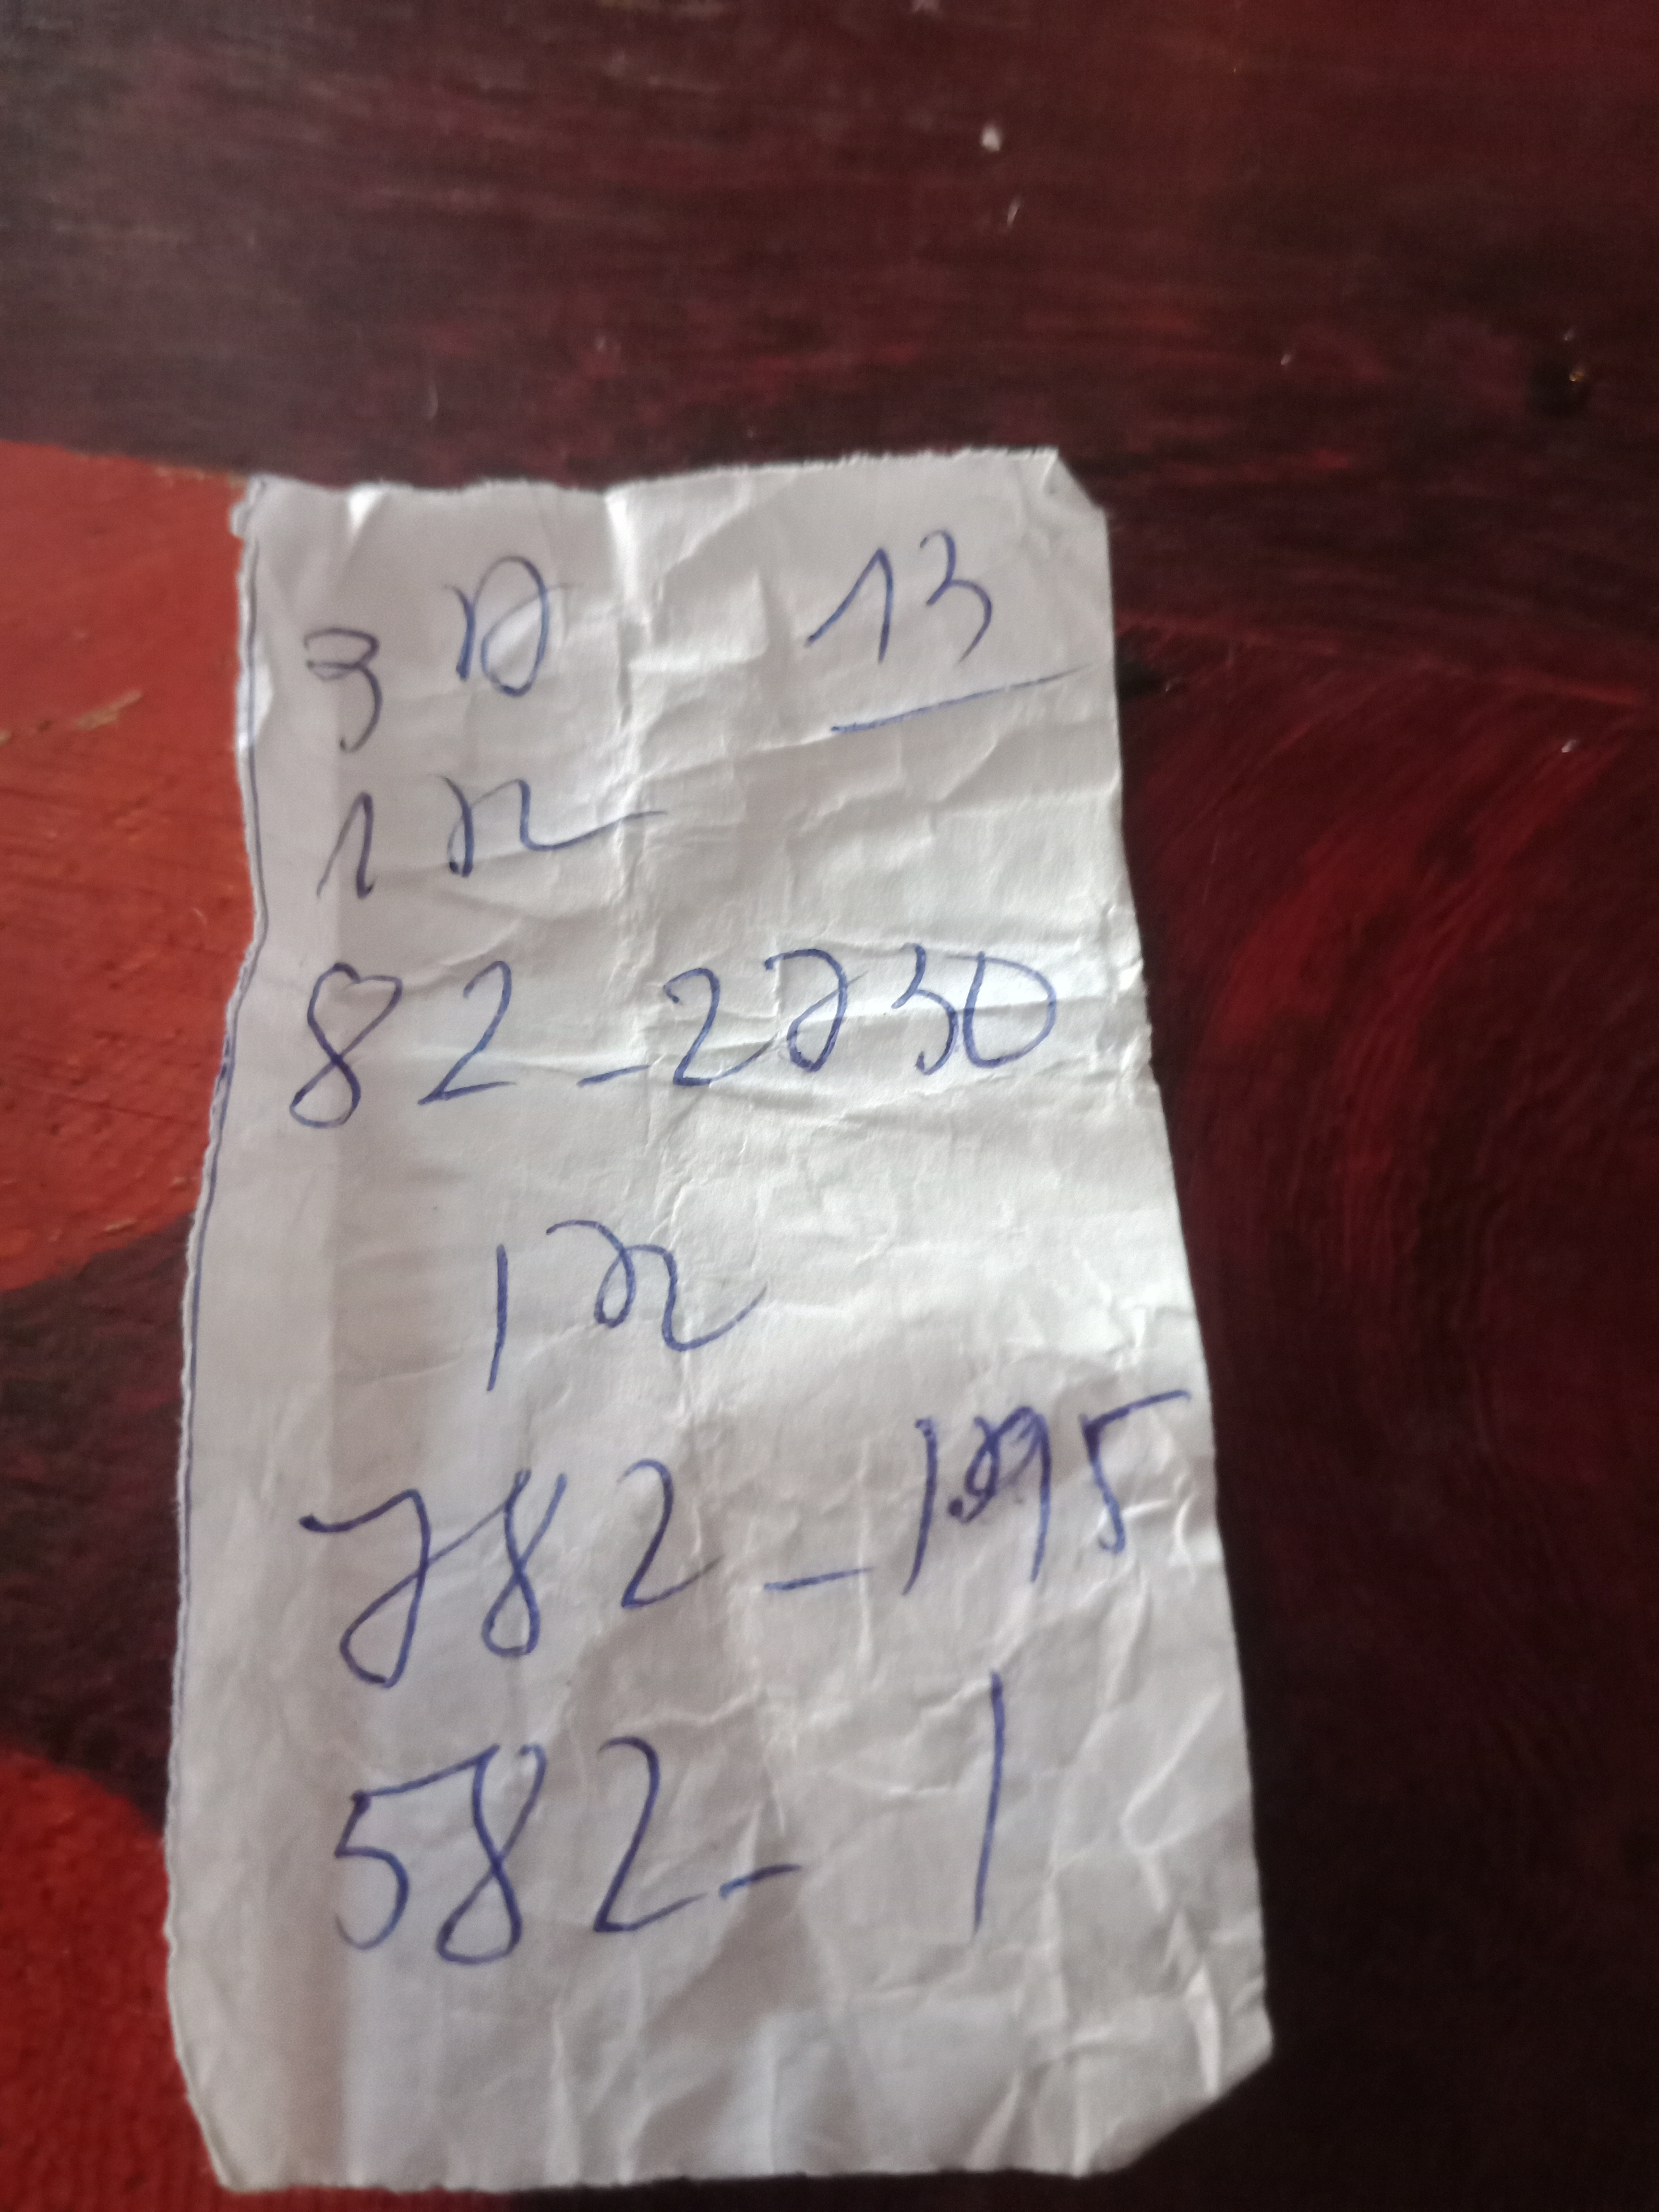 3 D 13
1 r
82 - 2730
1 r
782 - 195
582 - 1